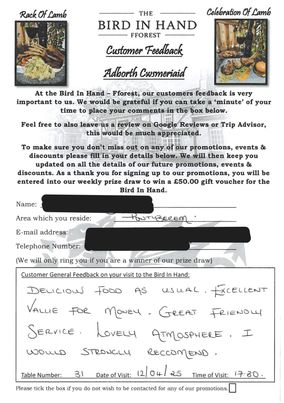 Rack Of Lamb
Celebration Of Lamb
THE
BIRD IN HAND
FFOREST
Customer Feedback
Adborth Cwsmeriaid
At the Bird In Hand – Fforest, our customers feedback is very
important to us. We would be grateful if you can take a ‘minute’ of your
time to place your comments in the box below.
Feel free to also leave us a review on Google Reviews or Trip Advisor,
this would be much appreciated.
To make sure you don't miss out on any of our promotions, events &
discounts please fill in your details below. We will then keep you
updated on all the details of our future promotions, events &
discounts. As a thank you for signing up to our promotions, you will be
entered into our weekly prize draw to win a £50.00 gift voucher for the
Bird In Hand.
Name:
Area which you reside: PONTIBEREM.
E-mail address:
Telephone Number:
(We will only ring you if you are a winner of our prize draw)
Customer General Feedback on your visit to the Bird In Hand:
DELICIOUS FOOD AS USUAL. EXCELLENT
VALUE FOR MONEY. GREAT FRIENDLY
SERVICE. LOVELY ATMOSPHERE. I
WOULD STRONGLY RECCOMEND.
Table Number: 31 Date of Visit: 12/04/25 Time of Visit: 17.30.
Please tick the box if you do not wish to be contacted for any of our promotions.